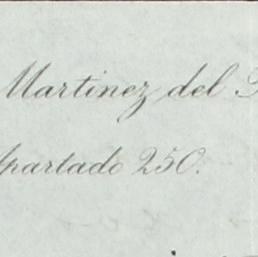 Martinez del
Apartado 250.